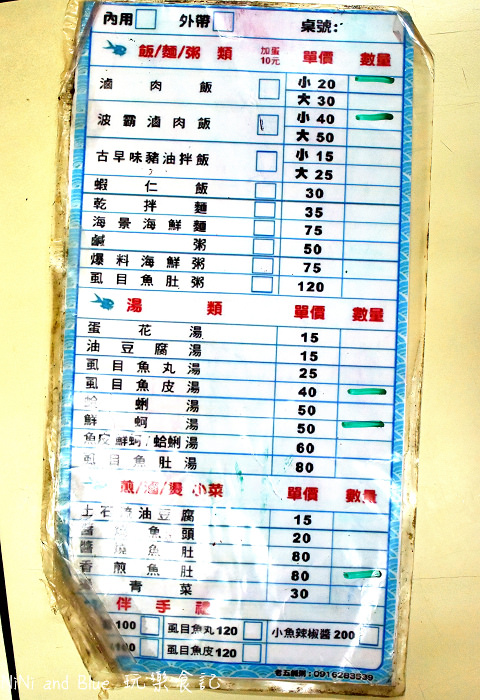 內用 外帶 桌號:
飯/麵/粥 類 加蛋10元 單價 數量
滷肉飯 小 20
大 30
波霸滷肉飯 小 40
大 50
古早味豬油拌飯 小 15
大 25
蝦仁飯 30
乾拌麵 35
海景海鮮麵 75
鹹粥 50
爆料海鮮粥 75
虱目魚肚粥 120
湯類 單價 數量
蛋花湯 15
油豆腐湯 15
虱目魚丸湯 25
虱目魚皮湯 40
蛤蜊湯 50
鮮蚵湯 50
魚皮鮮蚵/蛤蜊湯 60
虱目魚肚湯 80
煎/滷/燙 小菜 單價 數量
油豆腐 15
魚頭 20
醬燒魚肚 80
香煎魚肚 80
青菜 30
伴手禮
100 虱目魚丸120 小魚辣椒醬200
100 虱目魚皮120
:0916283539
NiNi and Blue 玩樂食記